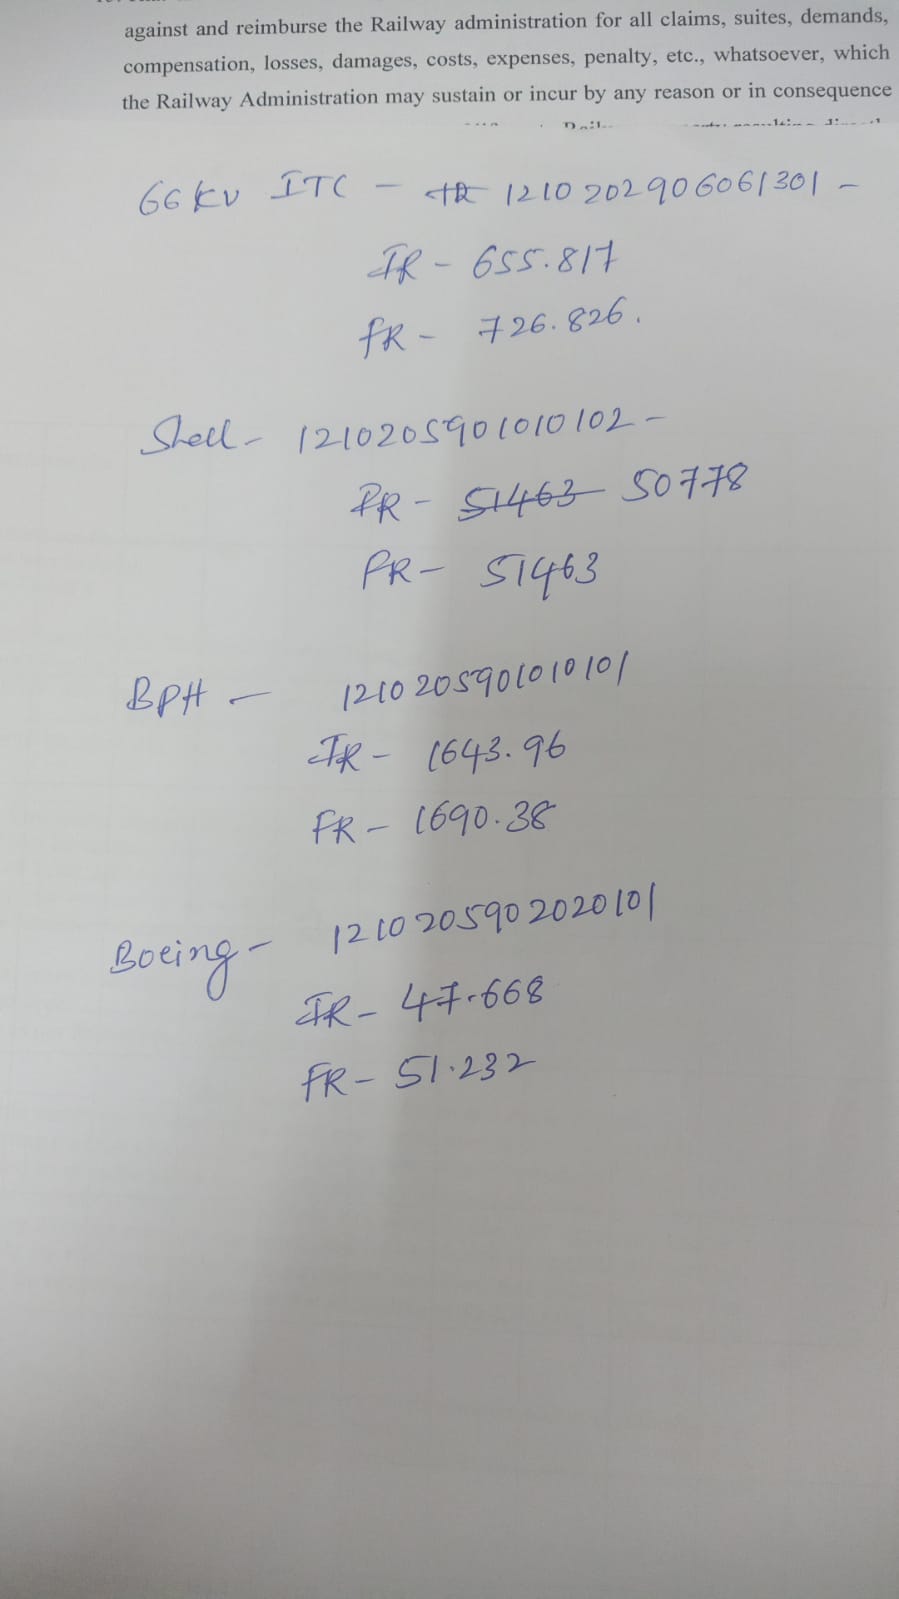 against and reimburse the Railway administration for all claims, suites, demands,
compensation, losses, damages, costs, expenses, penalty, etc., whatsoever, which
the Railway Administration may sustain or incur by any reason or in consequence
66 KV ITC - 1210202906061301 -
IR - 655.817
FR - 726.826.
Shell - 1210205901010102 -
PR - 51463 50778
PR - 51463
BPH - 1210205901010101
IR - 1643.96
FR - 1690.38
Boeing - 1210205902020101
IR - 47.668
FR - 51.232